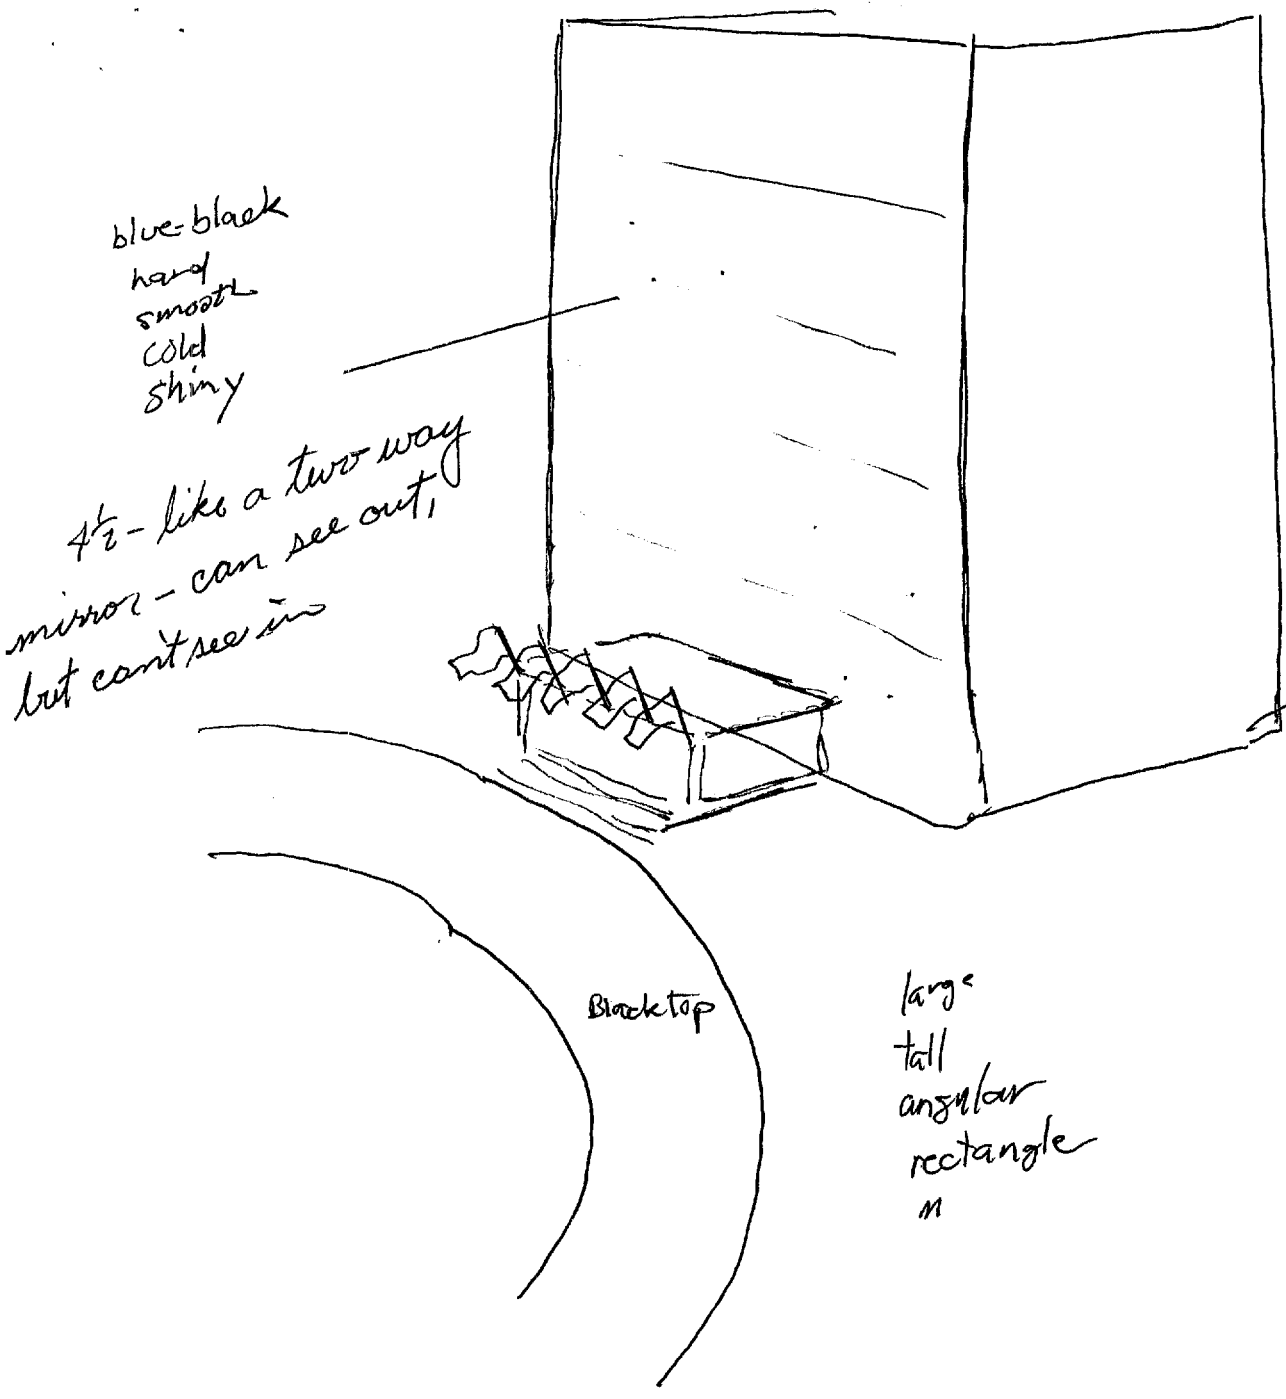 blue-black
hard
smooth
cold
shiny
4½ - like a two way
mirror - can see out,
but can't see in
Blacktop
large
tall
angular
rectangle
n